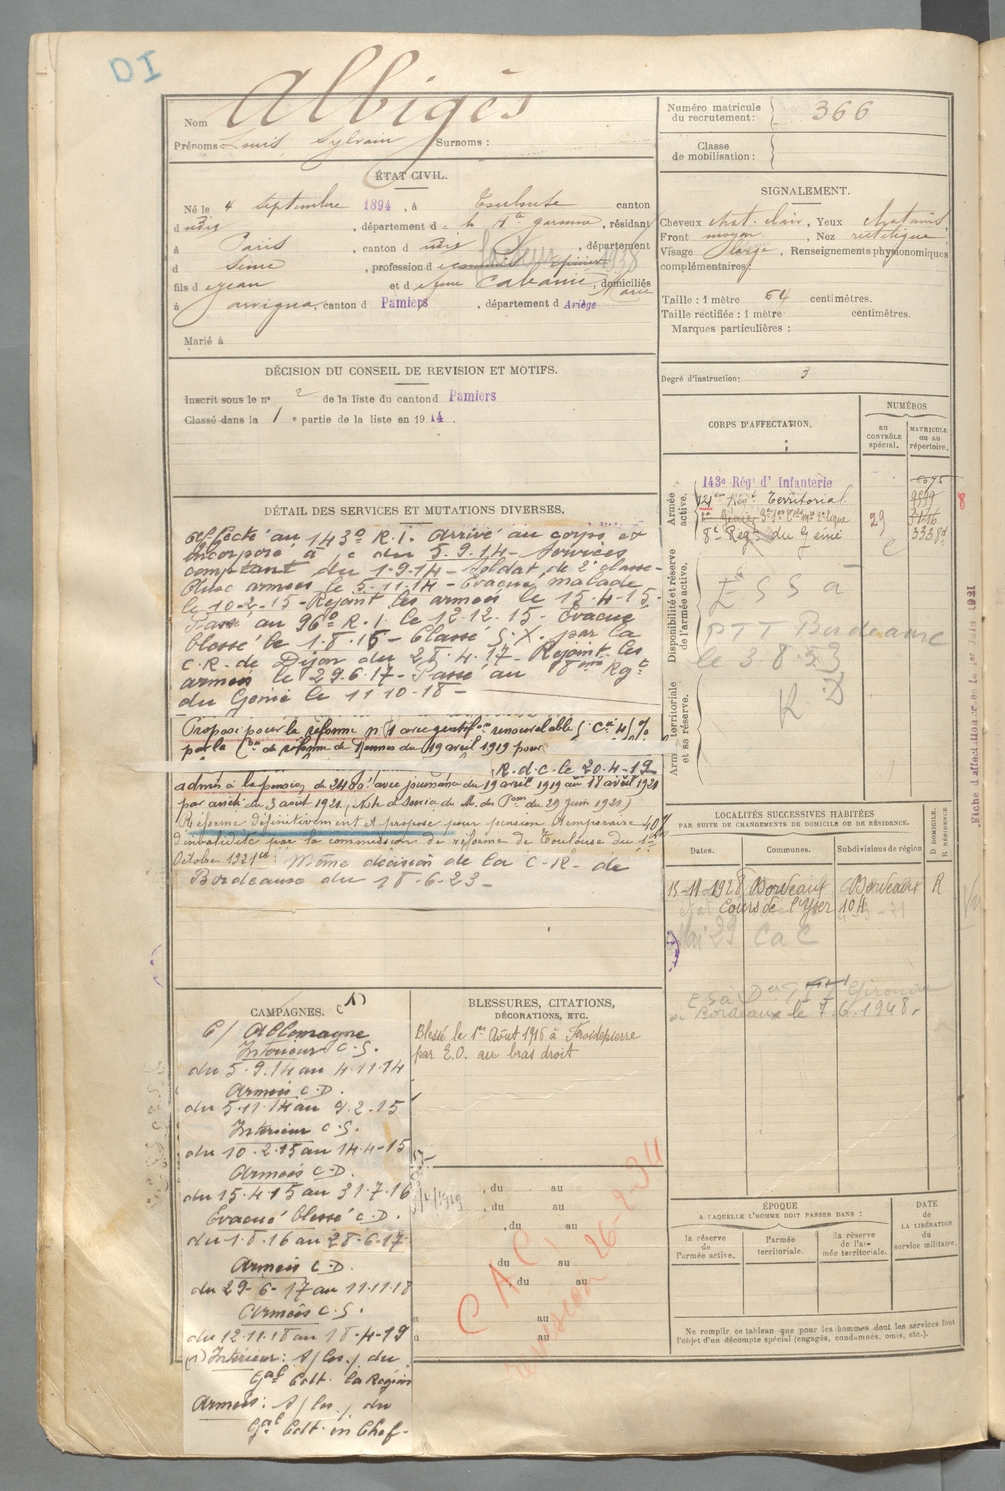 DI
Nom Albigès
Prénoms Louis Sylvain Surnoms :
ÉTAT CIVIL.
Né le 4 septembre 1894, à Toulouse canton
dudis, département de la Hte garonne, résidant
à Paris, canton dudis, département
d Seine, profession de
fils de jean et de feue Cabanié Marie, domiciliés
à arvigna, canton d Pamiers, département d Ariège
Marié à
DÉCISION DU CONSEIL DE REVISION ET MOTIFS.
Inscrit sous le n° 2 de la liste du canton d Pamiers
Classé dans la 1e partie de la liste en 1914.
DÉTAIL DES SERVICES ET MUTATIONS DIVERSES.
Affecté au 143e R.I. Arrivé au corps et
incorporé à c du 5.9.14 - Services
comptant du 1.9.14 - Soldat de 2e classe -
armées le 5.11.14 - Evacué malade
le 10-2-15 - Rejoint les armées le 15.4.15.
Passé au 96e R.I. le 12.12.15. Evacué
blessé le 1.8.16 - Classé S.X. par la
C.R. de Dijon du 28.4.17 - Rejoint les
armées le 29.6.17 - Passé au 8ème Rgt
du Génie le 11.10.18 -
Proposé pour la réforme n° 1 avec gratifon renouvelable
par la Con de réforme de Rennes du 19 avril 1919 pour
R.d.C. le 20-4-19
admis à la pension de 2480f avec jouissance du 19 avril 1919 au 18 avril 1921
par arrêté du 3 août 1921 (Note de Service du M. de Pons du 29 Juin 1921)
Réformé définitivement et proposé pour pension temporaire 40%
d'invalidité par la commission de réforme de Toulouse du 1er
Octobre 1921. Même décision de la C.R. de
Bordeaux du 18-6-23 -
CAMPAGNES. (1)
C/ Allemagne
Intérieur C.S.
du 5.9.14 au 4.11.14
Armées C.D.
du 5.11.14 au 9.2.15
Intérieur C.S.
du 10.2.15 au 14-4-15
Armées C.D.
du 15.4.15 au 31.7.16
Evacué blessé C.D.
du 1.8.16 au 28.6.17
Armées C.D.
du 29-6-17 au 11.11.18
Armées C.S.
du 12.11.18 au 18.4.19
(1) Intérieur : S/ les / du
Gal Cdt. la Région
Armées : S/ les / du
Gal Cdt. en Chef -
BLESSURES, CITATIONS,
DÉCORATIONS, ETC.
Blessé le 1er Août 1916 à Froidepierre
par E.O. au bras droit
, du au
, du au
, du au
, du au
, du au
au
au
CAC
26-2-34
Numéro matricule
du recrutement : 366
Classe
de mobilisation :
SIGNALEMENT.
Cheveux chat. clair, Yeux chatains
Front moyen, Nez rectiligne
Visage large, Renseignements physionomiques
complémentaires :
Taille : 1 mètre 64 centimètres.
Taille rectifiée : 1 mètre centimètres.
Marques particulières :
Degré d'instruction : 3
CORPS D'AFFECTATION.
NUMÉROS
au
CONTRÔLE
spécial.
MATRICULE
ou au
répertoire.
Armée
active.
143e Régt d'Infanterie
Régt Territorial
8e Régt du Génie
29
8
Disponibilité et réserve
de l'armée active.
PTT Bordeaux
le 3.8.53
Armée territoriale
et sa réserve.
LOCALITÉS SUCCESSIVES HABITÉES
PAR SUITE DE CHANGEMENTS DE DOMICILE OU DE RÉSIDENCE.
Dates.
Communes.
Subdivisions de région
D. DOMICILE.
R. RÉSIDENCE
15-11-1928 Bordeaux Bordeaux R
Cours de l'Yser 104
Mai 29 CaC
Bordeaux le 7.6.1948.
ÉPOQUE
A LAQUELLE L'HOMME DOIT PASSER DANS :
la réserve
de
l'armée active.
l'armée
territoriale.
la réserve
de l'ar-
mée territoriale.
DATE
de
LA LIBÉRATION
du
service militaire.
Ne remplir ce tableau que pour les hommes dont les services font
l'objet d'un décompte spécial (engagés, condamnés, omis, etc.).